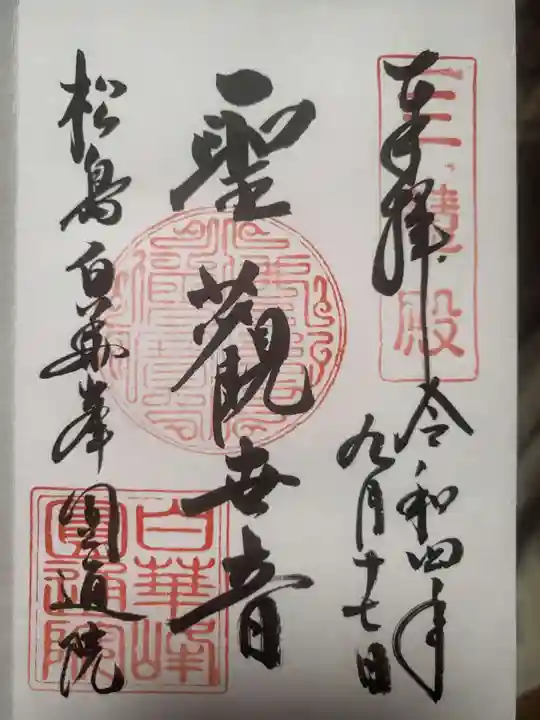 奉拝 令和四年
九月十七日
聖觀世音
松島白華峯圓通院
三慧殿
白華峰
圓通院